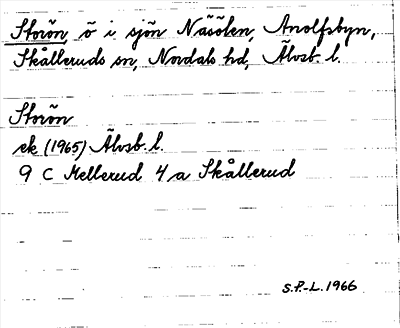 Storön, ö i sjön Näsölen, Anolfsbyn,
Skålleruds sn, Nordals hd, Älvsb. l.
Storön
ek (1965) Älvsb. l.
9 C Mellerud 4 a Skållerud
S.P.-L. 1966